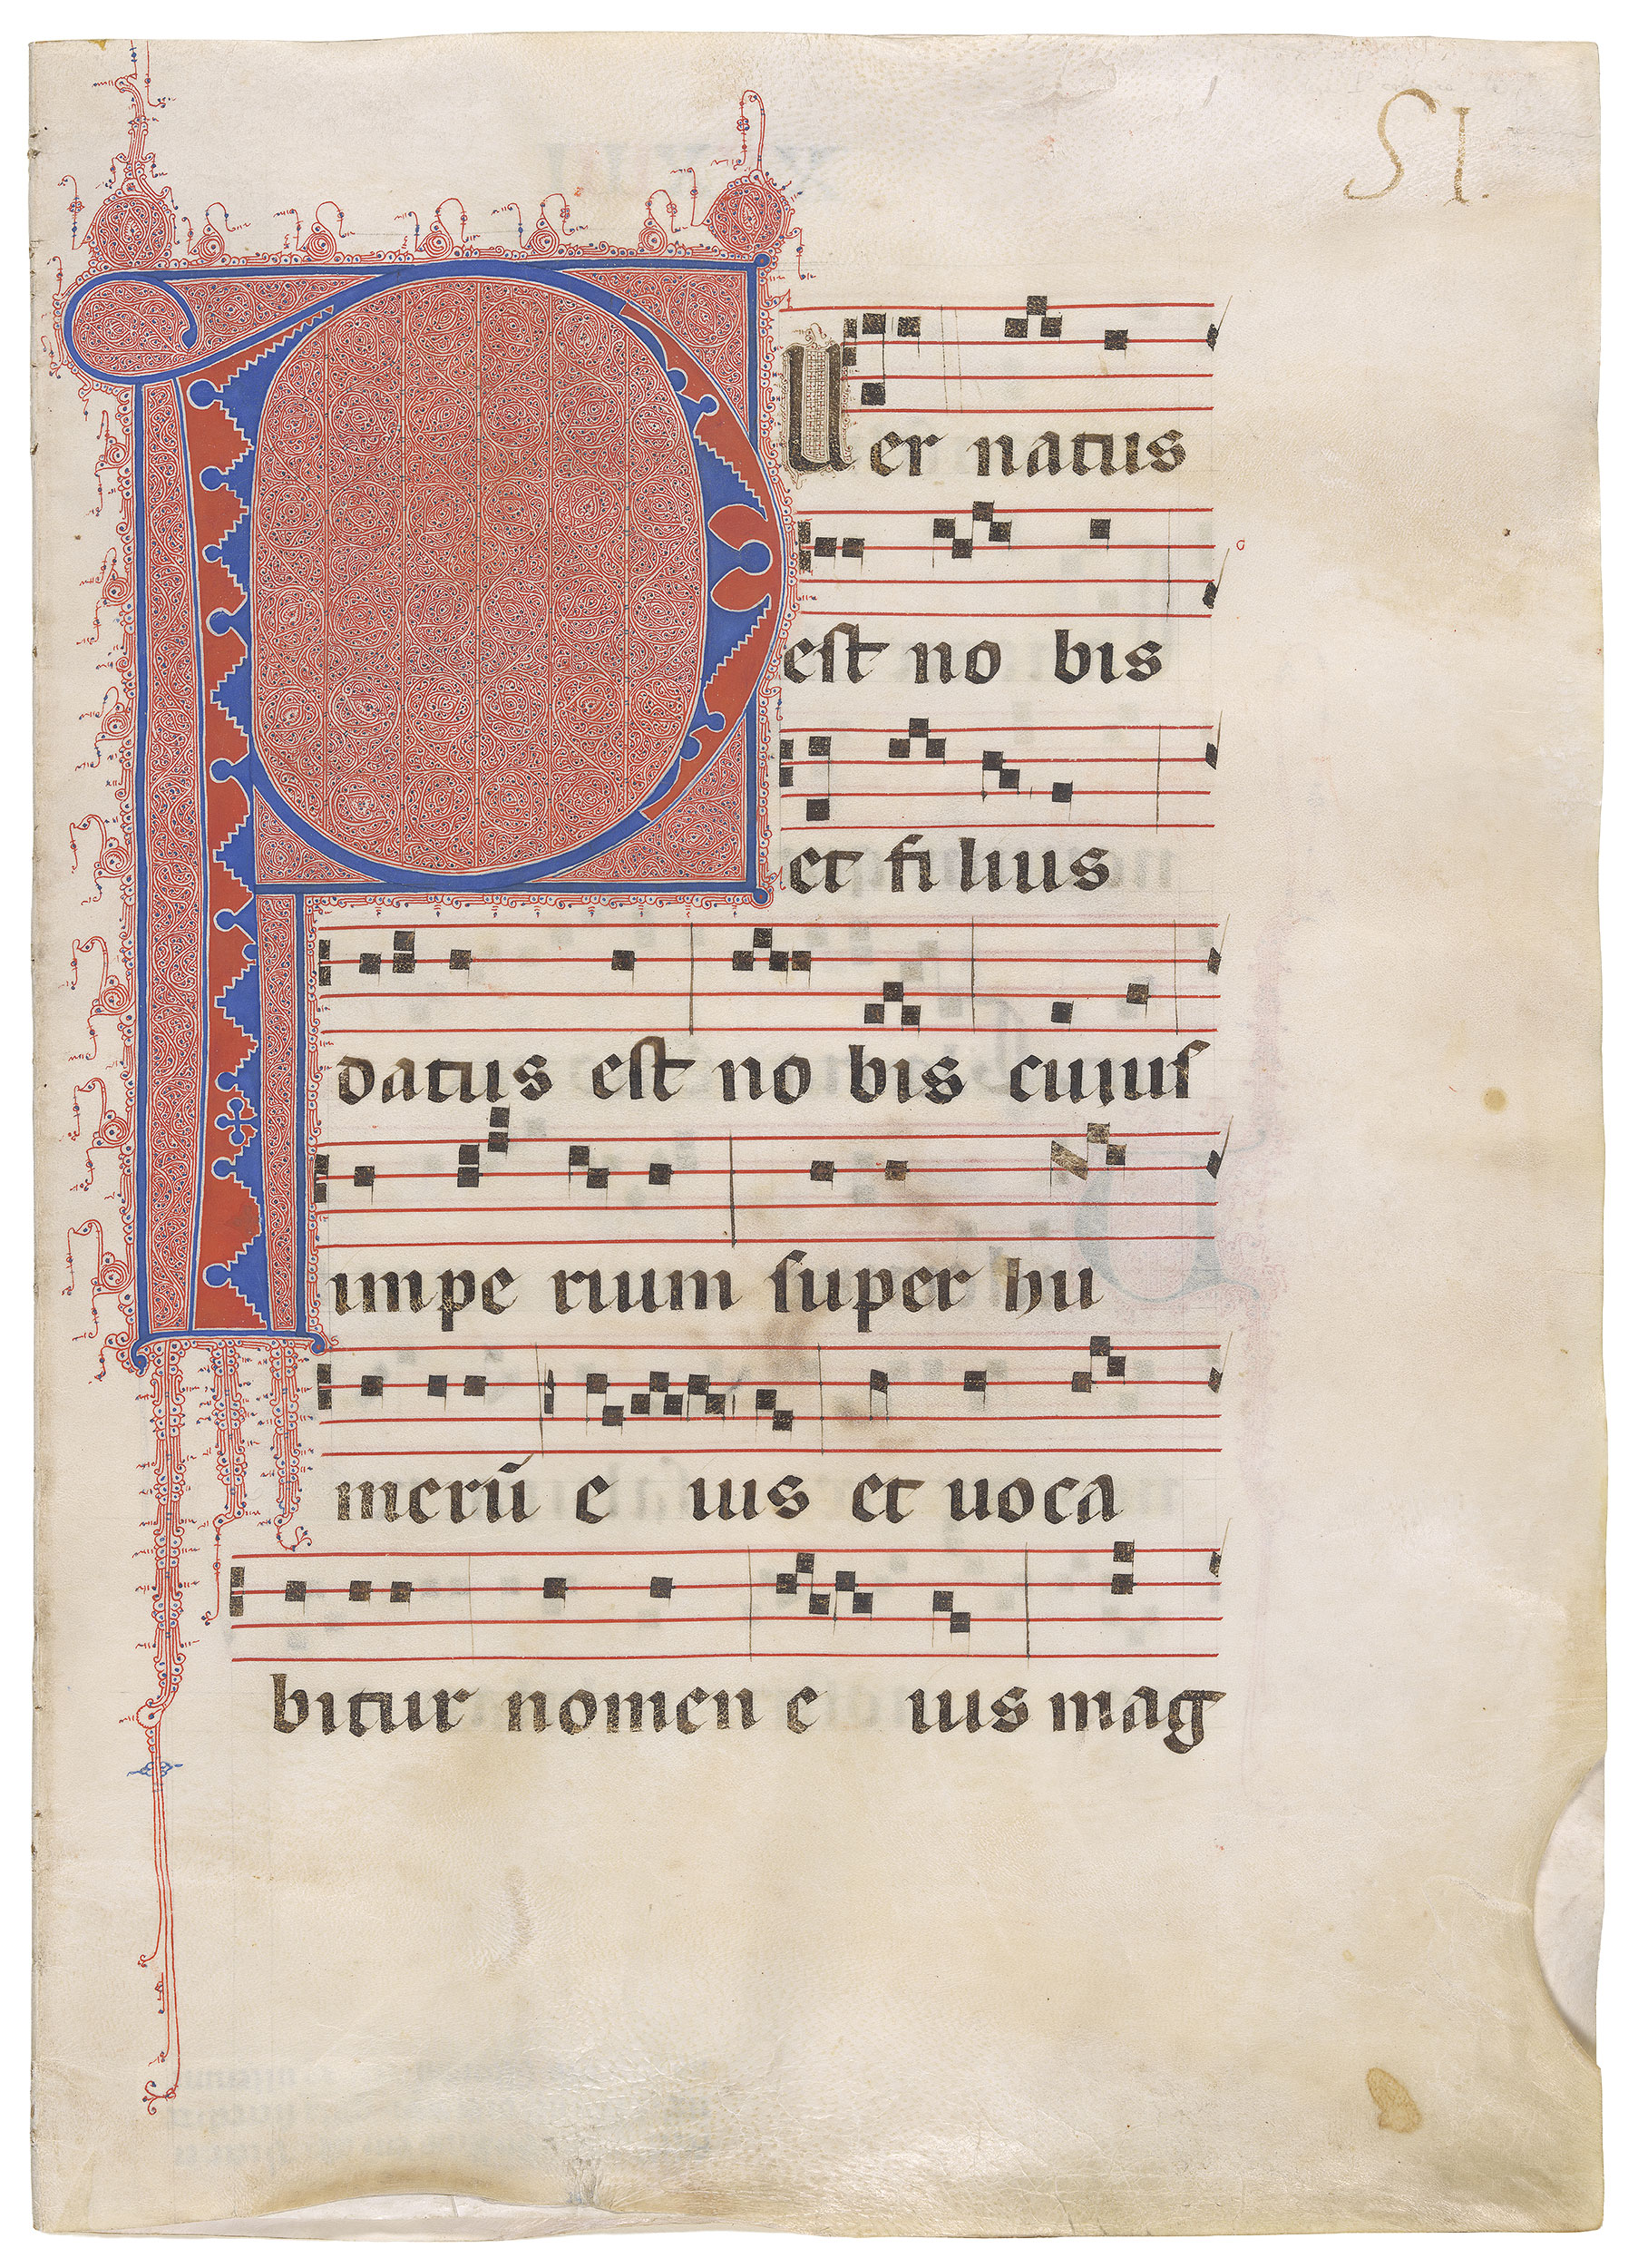 SI.
PUer natus
est no bis
et filius
datus est no bis cuius
impe rium super hu
merū e ius et uoca
bitur nomen e ius mag